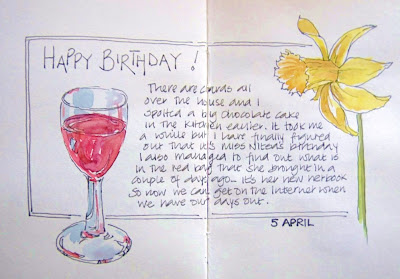 HAPPY BIRTHDAY!
There are cards all
over the house and I
spotted a big chocolate cake
in the kitchen earlier. It took me
a while but I have finally figured
out that it's miss Nitea's birthday
I also managed to find out what is
in the red bag that she brought in a
couple of days ago... it's her new netbook
So now we can get on the internet when
we have our days out.
5 APRIL